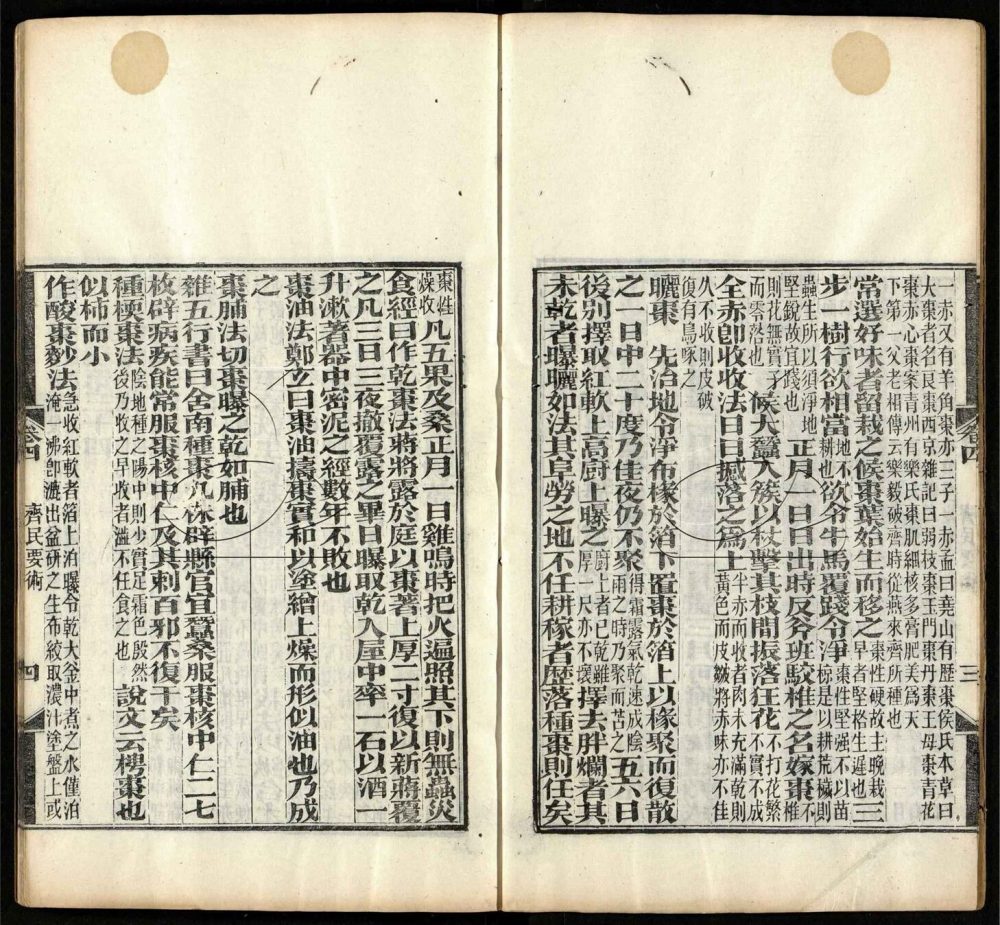 一赤又有羊角棗亦三子一赤孟曰堯山有歷棗侯氏本草曰
大棗者名良棗西京雜記曰弱枝棗玉門棗丹棗王母棗青花
棗赤心棗案青州有樂氏棗肌細核多膏肥美為天
下第一父老相傳云樂毅破齊時從燕來齊所種也
常選好味者留栽之候棗葉始生而移之棗性硬故主晚栽早者堅格生遲也三
步一樹行欲相當地不耕也欲令牛馬覆踐令淨棗性堅强不以苗稼是以耕荒穢則
蟲生所以須淨地堅銳故宜踐也正月一日日出時反斧班駮椎之名嫁棗不椎
則花無實斫子而零落也候大蠶入簇以杖擊其枝間振落狂花不打花繁不實不成
全赤卽收收法日日撼落之為上半赤而收者肉未充滿乾則黃色而皮皺將赤味亦不佳
久不收則皮破復有烏啄之
曬棗　先治地令淨布椽於箔下置棗於箔上以棎聚而復散
之一日中二十度乃佳夜仍不聚得霜露氣乾速成陰雨之時乃聚而苫之五六日
後別擇取紅軟上高廚上曝之廚上者已乾雖厚一尺亦不壞擇去胖爛者其
未乾者曝曬如法其阜勞之地不任耕稼者歷落種棗則任矣
卷四
三
棗性燥收凡五果及桑正月一日雞鳴時把火遍照其下則無蟲災
食經曰作乾棗法將蔣露於庭以棗著上厚二寸復以新蔣覆
之凡三日三夜撤覆露之畢日曝取乾入屋中率一石以酒一
升漱著器中密泥之經數年不敗也
棗油法鄭玄曰棗油擣棗實和以塗繒上燥而形似油也乃成
之
棗脯法切棗曝之乾如脯也
雜五行書曰舍南種棗九株辟縣官宜蠶桑服棗核中仁二七
枚辟病疾能常服棗核中仁及其刺百邪不復干矣
種楩棗法陰地種之陽中則少實足霜色殷然後乃收之早收者澁不任食之也說文云㮕棗也
似柿而小
作酸棗麨法急收紅軟者箔上泊曝令乾大釜中煮之水僅泊淹一沸卽漉出盆研之生布絞取濃汁塗盤上或
卷四
齊民要術
四